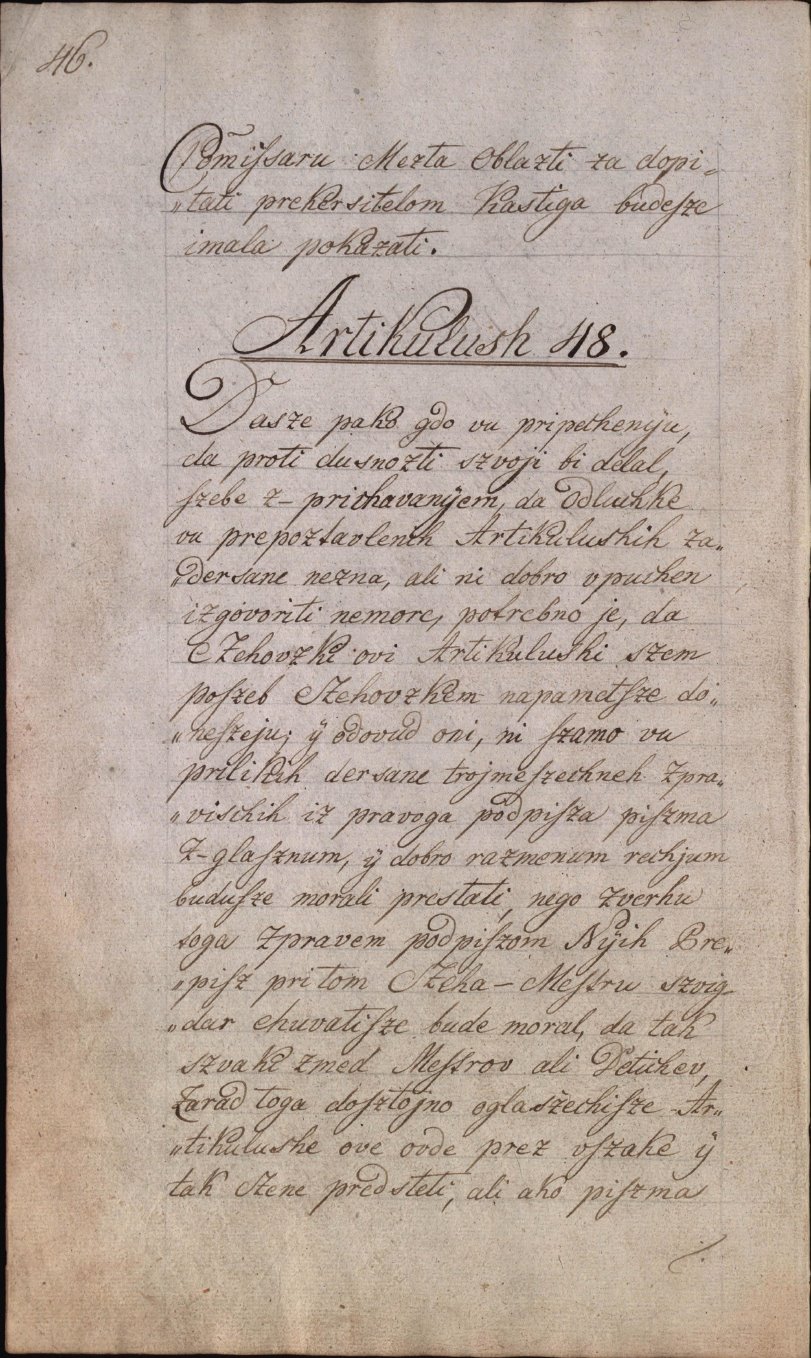 46.
Com̃issaru Mezta Oblazti za dopi„
„tati prekersitelom Kastiga budesze
imala pokazati.
Artikulush 48.
Dasze pako gdo vu pripecheniju,
da proti dusnozti szvoji bi delal,
szebe z- prichavanÿem, da Odluchke
vu prepoztavleneh Artikulushih za„
„dersane nezna, ali ni dobro vpuchen
izgovoriti nemore, potrebno je, da
CZehovzki ovi Artikulushi szem
poszeb Czehovzkem napametsze do„
„neszeju; ÿ odovud oni, ni szamo vu
prilikah dersane trojmeszechneh zpra„
„vischih iz pravoga podpisza piszma
Z-glasznum, ÿ dobro razmenum rechjum
budusze morali prestati, nego zverhu
toga Zpravem podpiszom Nÿih Pre„
„pisz pri tom CZeha-Mestru szvig
„dar chuvatisze bude moral, da tak
szvaki zmed Mestrov ali Detichev,
Zarad toga dosztojno oglaszechisze Ar„
„tikulushe ove ovde prez vszake ÿ
tak Czene predsteti, ali ako piszma